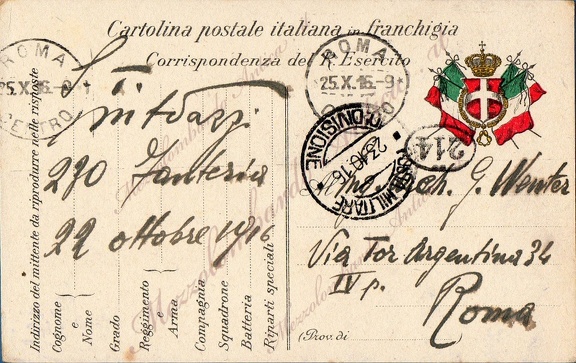 Cartolina postale italiana in franchigia
Corrispondenza del R. Esercito
ROMA
25.X.16-9
CENTRO
ROMA
25.X.16-9
CENTRO
POSTA MILITARE
DIVISIONE
23.10.16
214
Indirizzo del mittente da riprodurre nelle risposte
Cognome e Nome
Grado
Reggimento e Arma
Compagnia
Squadrone
Batteria
Riparti speciali
230 Fanteria
22 ottobre 1916
G. Wenter
Via Tor Argentina 34
IV p.
Roma
(Prov. di